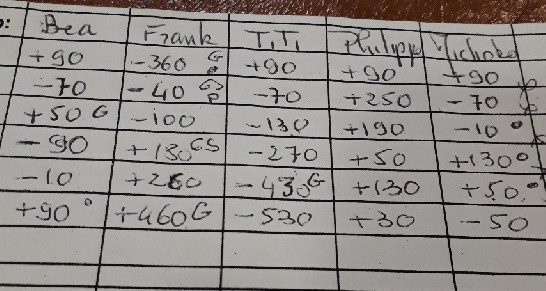 Bea Frank T,T, Philipp
+90 -360 G +90 +90 +90
-70 -40 -70 +250 -70
+50 G -100 -130 +190 -10°
-90 +180 GS -270 +50 +130°
-10 +260 -430 G +130 +50°
+90° +460 G -530 +30 -50